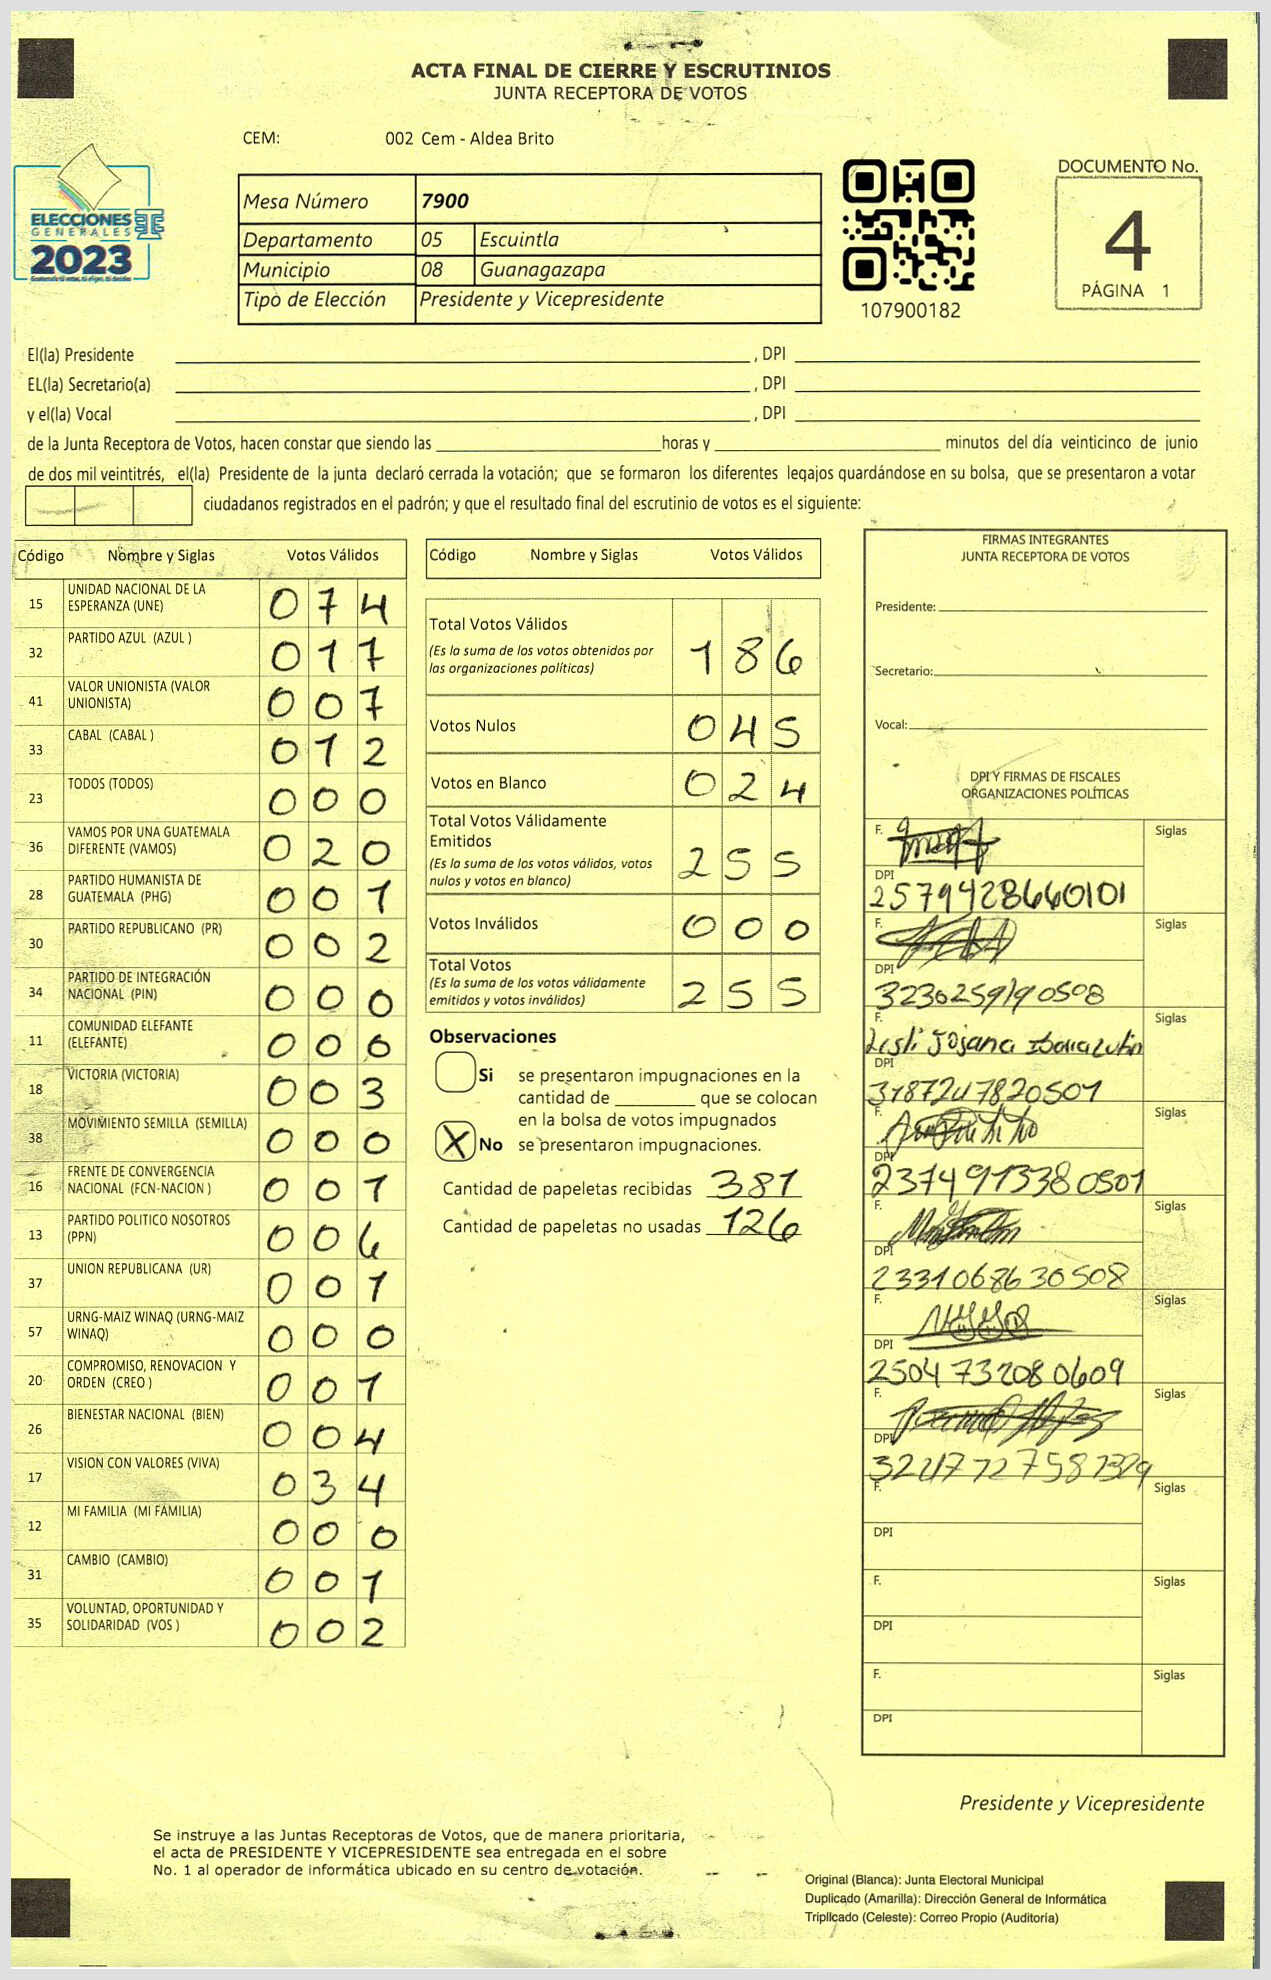 ACTA FINAL DE CIERRE Y ESCRUTINIOS
JUNTA RECEPTORA DE VOTOS
CEM: 002 Cem - Aldea Brito
ELECCIONES
GENERALES
2023
Mesa Número 7900
Departamento 05 Escuintla
Municipio 08 Guanagazapa
Tipo de Elección Presidente y Vicepresidente
107900182
DOCUMENTO No.
4
PÁGINA 1
El(la) Presidente , DPI
EL(la) Secretario(a) , DPI
y el(la) Vocal , DPI
de la Junta Receptora de Votos, hacen constar que siendo las horas y minutos del día veinticinco de junio
de dos mil veintitrés, el(la) Presidente de la junta declaró cerrada la votación; que se formaron los diferentes legajos quardándose en su bolsa, que se presentaron a votar
ciudadanos registrados en el padrón; y que el resultado final del escrutinio de votos es el siguiente:
Código Nombre y Siglas Votos Válidos
15 UNIDAD NACIONAL DE LA ESPERANZA (UNE) 074
32 PARTIDO AZUL (AZUL ) 017
41 VALOR UNIONISTA (VALOR UNIONISTA) 007
33 CABAL (CABAL ) 012
23 TODOS (TODOS) 000
36 VAMOS POR UNA GUATEMALA DIFERENTE (VAMOS) 020
28 PARTIDO HUMANISTA DE GUATEMALA (PHG) 001
30 PARTIDO REPUBLICANO (PR) 002
34 PARTIDO DE INTEGRACIÓN NACIONAL (PIN) 000
11 COMUNIDAD ELEFANTE (ELEFANTE) 000
18 VICTORIA (VICTORIA) 003
38 MOVIMIENTO SEMILLA (SEMILLA) 000
16 FRENTE DE CONVERGENCIA NACIONAL (FCN-NACION ) 001
13 PARTIDO POLITICO NOSOTROS (PPN) 006
37 UNION REPUBLICANA (UR) 001
57 URNG-MAIZ WINAQ (URNG-MAIZ WINAQ) 000
20 COMPROMISO, RENOVACION Y ORDEN (CREO ) 001
26 BIENESTAR NACIONAL (BIEN) 004
17 VISION CON VALORES (VIVA) 034
12 MI FAMILIA (MI FAMILIA) 000
31 CAMBIO (CAMBIO) 001
35 VOLUNTAD, OPORTUNIDAD Y SOLIDARIDAD (VOS ) 002
Código Nombre y Siglas Votos Válidos
Total Votos Válidos 186
(Es la suma de los votos obtenidos por
las organizaciones políticas)
Votos Nulos 045
Votos en Blanco 024
Total Votos Válidamente
Emitidos 255
(Es la suma de los votos válidos, votos
nulos y votos en blanco)
Votos Inválidos 000
Total Votos 255
(Es la suma de los votos válidamente
emitidos y votos inválidos)
Observaciones
Si se presentaron impugnaciones en la
cantidad de que se colocan
en la bolsa de votos impugnados
X No se presentaron impugnaciones.
Cantidad de papeletas recibidas 381
Cantidad de papeletas no usadas 126
FIRMAS INTEGRANTES
JUNTA RECEPTORA DE VOTOS
Presidente:
Secretario:
Vocal:
DPI Y FIRMAS DE FISCALES
ORGANIZACIONES POLÍTICAS
F. Siglas
DPI
2579428660101
F. Siglas
DPI
3230259190508
F. Siglas
DPI
3187247820501
F. Siglas
DPI
2374913380501
F. Siglas
DPI
2331068630508
F. Siglas
DPI
2504732080609
F. Siglas
DPI
F. Siglas
DPI
F. Siglas
DPI
F. Siglas
DPI
Presidente y Vicepresidente
Se instruye a las Juntas Receptoras de Votos, que de manera prioritaria,
el acta de PRESIDENTE Y VICEPRESIDENTE sea entregada en el sobre
No. 1 al operador de informática ubicado en su centro de votación.
Original (Blanca): Junta Electoral Municipal
Duplicado (Amarilla): Dirección General de Informática
Triplicado (Celeste): Correo Propio (Auditoría)